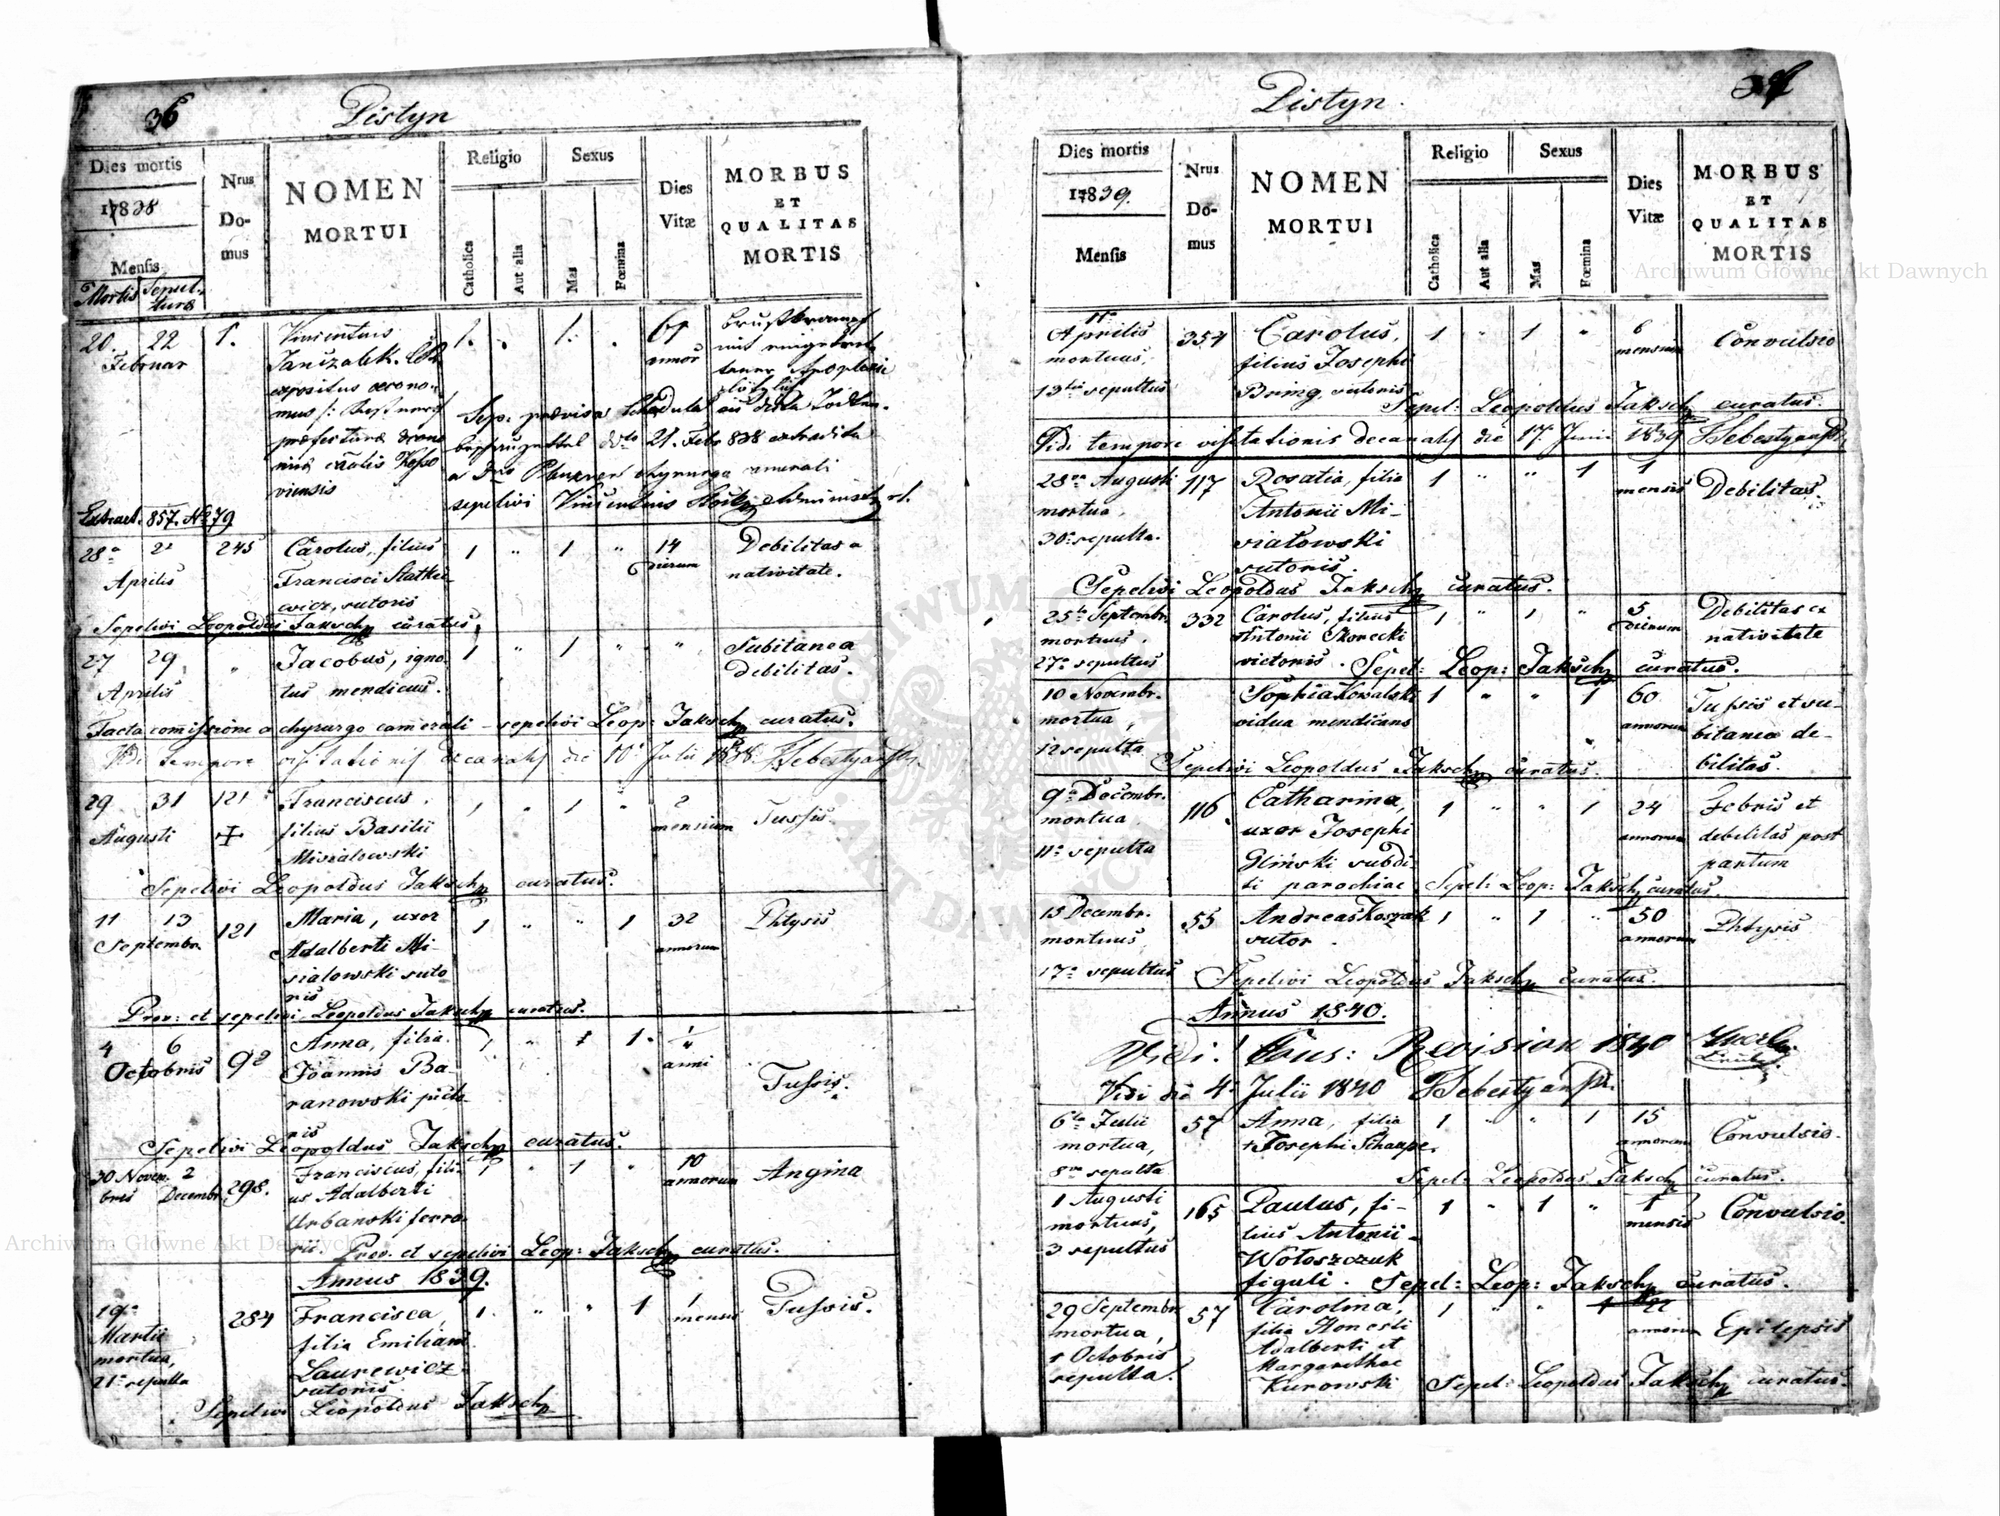 36
Pistyn
Dies mortis
Nrus Domus
NOMEN MORTUI
Religio
Sexus
Dies Vitæ
MORBUS ET QUALITAS MORTIS
1838
Mensis
Catholica
Aut alia
Mas
Fœmina
Mortis
Sepulturæ
20. 22 1. Vincentius 1. 1. 61
Februar annor
expositus oecono-
mus
præfecturæ
viensis
Sep: prævisa
21. Febr 838 extradita
a chyrurgo camerali
sepelivi Vincentius
Extract. 857. No 79
28a 2a 245 Carolus, filius 1 " 1 " 14 Debilitas a
Aprilis Francisci Statkie- dierum nativitate.
wicz, sutoris
Sepelivi Leopoldus Jaksch curatus.
27 29 " Jacobus, igno- 1 " 1 " " Subitanea
Aprilis tus mendicus. debilitas.
Facta comissione a chyrurgo camerali - sepelivi Leop: Jaksch curatus.
Vidi tempore visitationis decanalis die 10 Julii 1838. Sebestyansky
29 31 121 Franciscus, 1 " 1 " 2 Tussis.
Augusti filius Basilii mensium
Misialowski
Sepelivi Leopoldus Jaksch curatus.
11 13 121 Maria, uxor 1 " " 1 32 Phtysis
Septembr. Adalberti Mi- annorum
sialowski suto
ris
Prov: et sepelivi Leopoldus Jaksch curatus.
4 6 92 Anna, filia 1 " 1 1. 1
Octobris Joannis Ba- anni Tussis.
ranowski picto-
ris
Sepelivi Leopoldus Jaksch curatus.
30 Novem- 2 298. Franciscus, fili- 1 " 1 " 10 Angina
bris Decembr. us Adalberti annorum
Urbanski ferra-
rii. Prov. et sepelivi Leop: Jaksch curatus.
Annus 1839.
19a 284 Francisca, 1. " " 1 1 Tussis.
Martii filia Emiliani mensis
mortua, Laurewicz
21a sepulta sutoris
Sepelivi Leopoldus Jaksch
Pistyn.
Dies mortis
Nrus Domus
NOMEN MORTUI
Religio
Sexus
Dies Vitæ
MORBUS ET QUALITAS MORTIS
1839.
Mensis
Catholica
Aut alia
Mas
Fœmina
11a
Aprilis 354 Carolus, 1 " 1 " 6 Convulsio
mortuus, filius Josephi mensium
13tia sepultus Bring, sutoris
Sepel: Leopoldus Jaksch curatus.
Vidi tempore visitationis decanalis die 17. Junii 1839 Sebestyansky
28va Augusti 117 Rosalia, filia 1 " " 1 1 Debilitas.
mortua, Antonii Mi- mensis
30a sepulta. sialowski
sutoris.
Sepelivi Leopoldus Jaksch curatus.
25ta Septembr. 332 Carolus, filius 1 " 1 " 5 Debilitas ex
mortuus, Antonii Skorecki dierum nativitate
27a sepultus victoris. Sepel: Leop: Jaksch curatus.
10 Novembr. Sophia Kowalski 1 " " 1 60 Tussis et su-
mortua, vidua mendicans annorum bitanea de-
12 sepulta bilitas.
Sepelivi Leopoldus Jaksch curatus.
9a Decembr. 116 Catharina, 1 " " 1 24 Febris et
mortua uxor Josephi annorum debilitas post
11a sepulta Glinski subdi- partum
ti parochiae Sepel: Leop: Jaksch curatus.
15 Decembr. 55 Andreas Koszak 1 " 1 " 50 Phtysis
mortuus sutor. annorum
17a sepultus Sepelivi Leopoldus Jaksch curatus.
Annus 1840.
Vidi! Revision 1840
Vidi die 4. Julii 1840 Sebestyansky
6ta Julii 57 Anna, filia 1 " " 1 15 Convulsio.
mortua, Josephi Scharpe. annorum
8va sepulta Sepel: Leopoldus Jaksch curatus.
1 Augusti 165 Paulus, fi- 1 " 1 " 1 Convulsio.
mortuus, lius Antonii mensis
3 sepultus Wołoszczuk
figuli. Sepel: Leop: Jaksch curatus.
29 Septembr. 57 Carolina, 1 " " 1 22 Epilepsis
mortua, filia Honesti annorum
1 Octobris Adalberti et
sepulta. Margarethae
Kurowski Sepel: Leopoldus Jaksch curatus.
Archiwum Główne Akt Dawnych
Archiwum Główne Akt Dawnych
ARCHIWUM GŁÓWNE AKT DAWNYCH